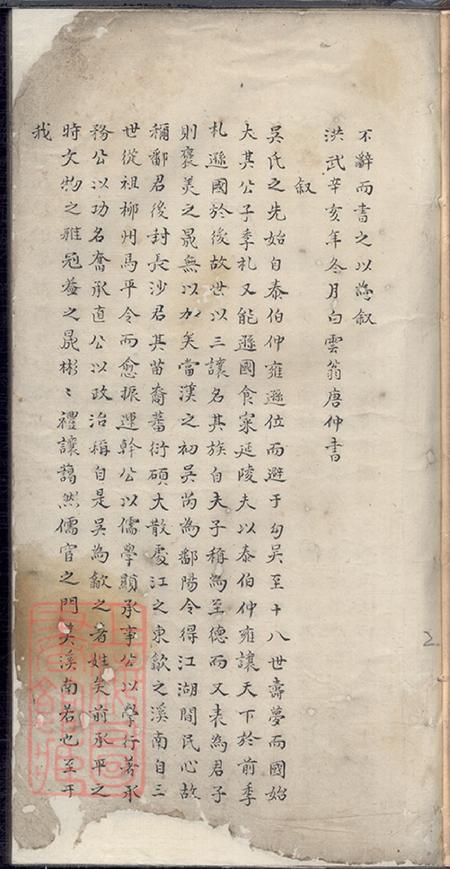 不辭而書之以為叙
洪武辛亥年冬月白雲翁唐仲書
叙
吳氏之先始自泰伯仲雍遜位而避于勾吳至十八世壽夢而國始
大其公子季札又能遜國食寀延陵夫以泰伯仲雍讓天下於前季
札遜國於後故世以三讓名其族自夫子稱為至德而又表為君子
則褒美之晁無以加矣當漢之初吳芮為鄱陽令得江湖間民心故
稱鄱君後封長沙君其苗裔蕃衍碩大散處江之東歙之溪南自三
世從祖柳州馬平令而愈振運幹公以儒學顯承事公以學行著承
務公以功名奮承直公以政治稱自是吳為歙之著姓矣前承平之
時文物之雅冠蓋之晁彬〻禮讓藹然儒官之門其溪南若也至于
我
2